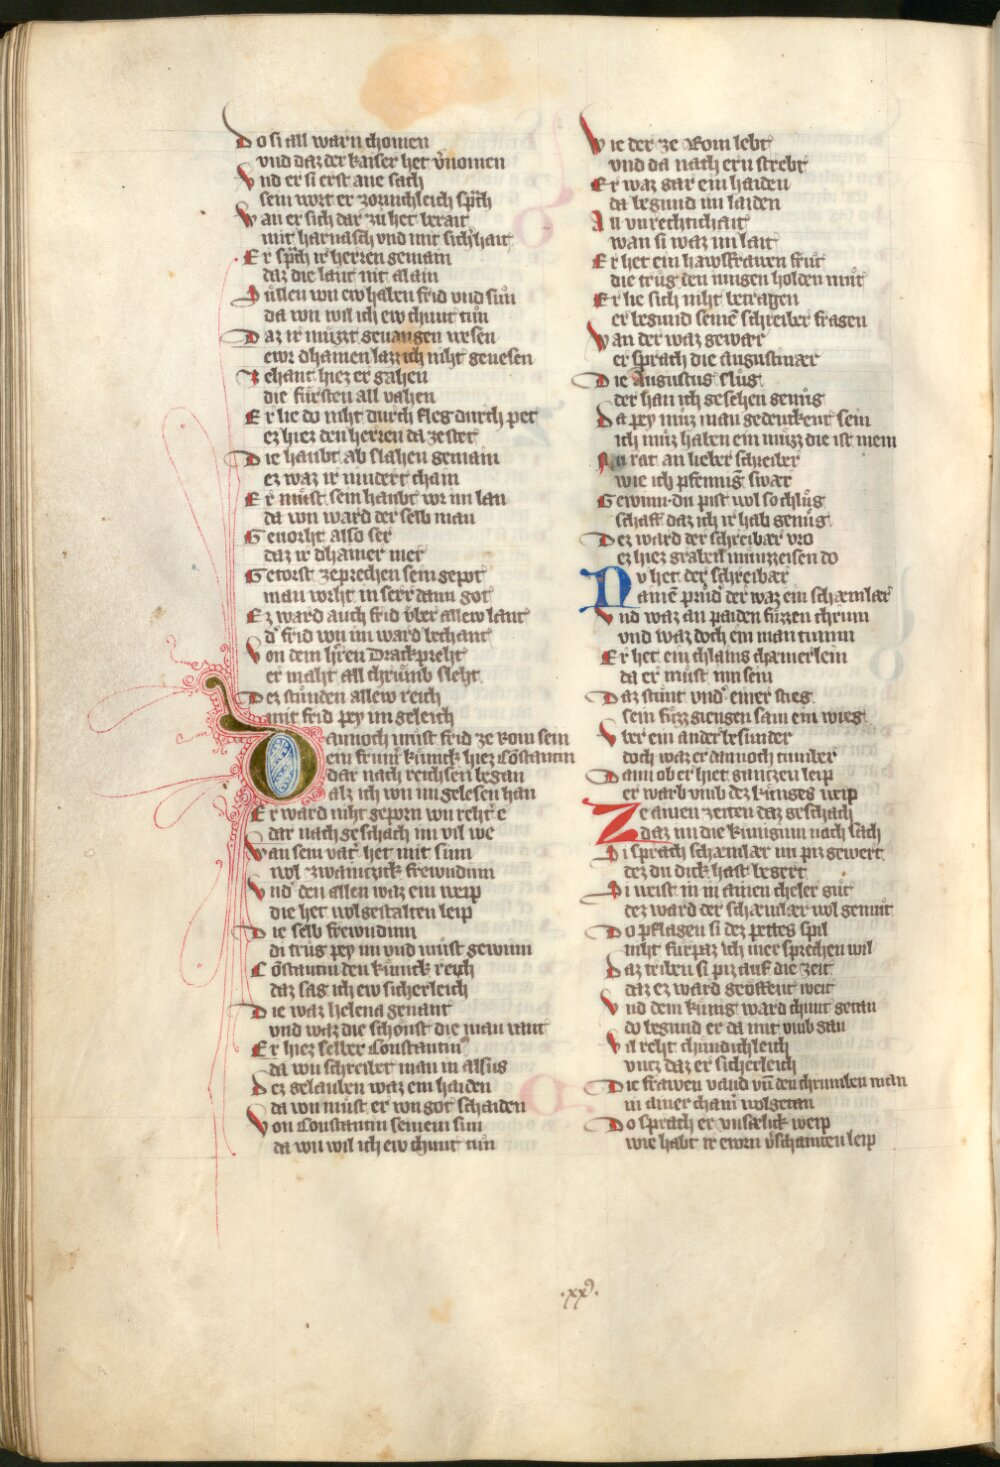 Do si all warn chomen
vnd daz der kaiser het v̓nomen
Vnd er si erst ane sach
sein wort er zornichleich sp̃ch
Wan er sich dar zů het berait
mit harnasch vnd mit sichhait
Er sp̃ch ir herren gemain
daz die laut nit alain
Sullen von ew haben frid vnd sůn
da von wil ich ew chunt tůn
Daz ir můzzt geuangen wesen
ewr dhainen lazz ich niht genesen
Zehant hiez er gahen
die fůrsten all vahen
Er lie do niht durch fleg durch pet
er hiez den herren da ze stet
Die haubt ab slahen gemain
ez waz ir nindert chain
Er můst sein haubt vor im lan
da von ward der selb man
Geuorht also ser
daz ir dhainer mer
Getorst zeprechen sein gepot
man vorht in serr dann got
Ez ward auch frid v̊ber allew lant
d̓ frid von im ward bechant
Von dem h̓ren Drackpreht
er maht all chrůmb sleht
Dez stůnden allew reich
mit frid pey im geleich
Dannoch můst frid ze rom sein
ein frum kůnick hiez Cõstantin
dar nach reichsen began
alz ich von im gelesen han
Er ward niht geporn von reht̓ e
dar nach geschach im vil we
Wan sein vat̓ het mit sinn
wol zwainczick frewndinn
Vnd̓ den allen waz ein weip
die het wolgestalten leip
Die selb frewndinn
di trůg pey im vnd můst gewinn
Cõstantin den kůnick reich
daz sag ich ew sicherleich
Die waz helena genant
vnd waz die schonst die man vant
Er hiez selber Constantin
da von schreibet man in alsus
Dez gelauben waz ein haiden
da von můst er von got schaiden
Von Constantin seinem sun
da von wil ich ew chunt tůn
Wie der ze Rom lebt
vnd da nach ern strebt
Er waz gar ein haiden
da begund im laiden
All vnrechtichait
wan si waz im lait
Er het ein hawsfrawen frůt
die trůg den iungen holden můt
Er lie sich niht betragen
er begund seinẽ schreiber fragen
Wan der waz gewær
er sprach die augustinær
Die Augustus slůg
der han ich gesehen genůg
Da pey můz man gedenkent sein
ich můz haben ein můzz die ist mein
Nu rat an lieber schreiber
wie ich pfenning swær
Gewinn du pist wol so chlůg
schaff daz ich ir hab genůg
Dez ward der schreibær vro
er hiez graben můnzeisen do
Nv het der schreibær
ainẽ průd̓ der waz ein schæmlær
Vnd waz an paiden fůzzen chrum
vnd waz doch ein man tumm
Er het ein chlains chæmerlein
da er můst inn sein
Daz stůnt vnd̓ einer stieg
sein fůzz giengen sam ein wieg
Vber ein ander besunder
doch waz er dannoch tumber
Dann ob er hiet ganczen leip
er warb vmb dez kůniges weip
Ze ainen zeiten daz geschach
daz im die kůniginn nach sach
Si sprach schæmlær nu piz gewert
dez du dick hast begert
Si weist in in ainen cheler gůt
dez ward der schæmlær wol gemůt
Do pflagen si dez pettes spil
niht fůrpaz ich mer sprechen wil
Daz triben si piz auf die zeit
daz ez ward geoffent weit
Vnd dem kůnig ward chunt getan
do begund er da mit vmb gan
Vil reht chůndichleich
vncz daz er sicherleich
Die frawen vand vñ den chrumben man
in ainer cham̓ wolgetan
Do sprach er vnsælick weip
wie habt ir ewrn v̓schamten leip
·xx⁹·